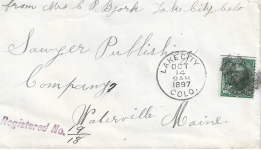 from Mrs C P Bjork Lake City Colo
Sawyer Publishing
Company
Waterville Maine
LAKE CITY
OCT
14
9AM
1897
COLO.
Registered No. 19
18